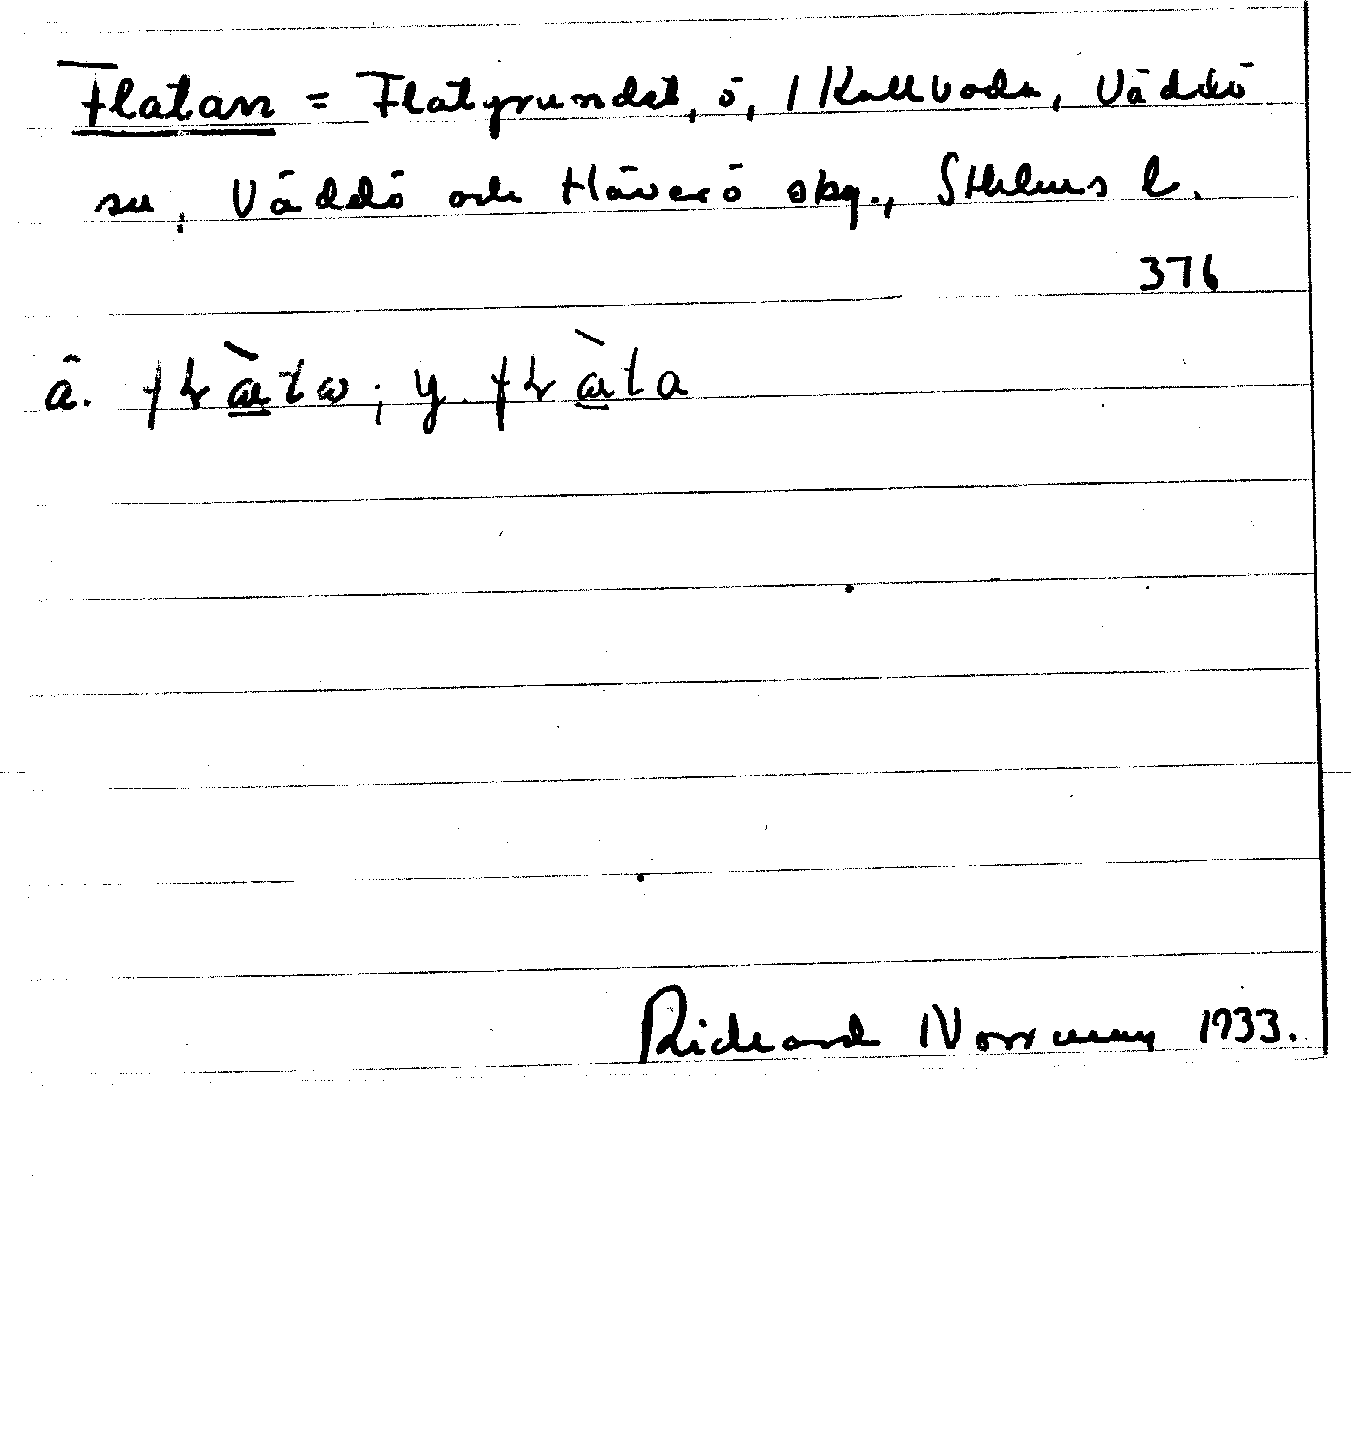 Flatan = Flatgrundet, ö, 1 Kallboda, Väddö
sn, Väddö och Häverö skg., Sthlms l.
376
ä. y.
Rickard Norrman 1933.